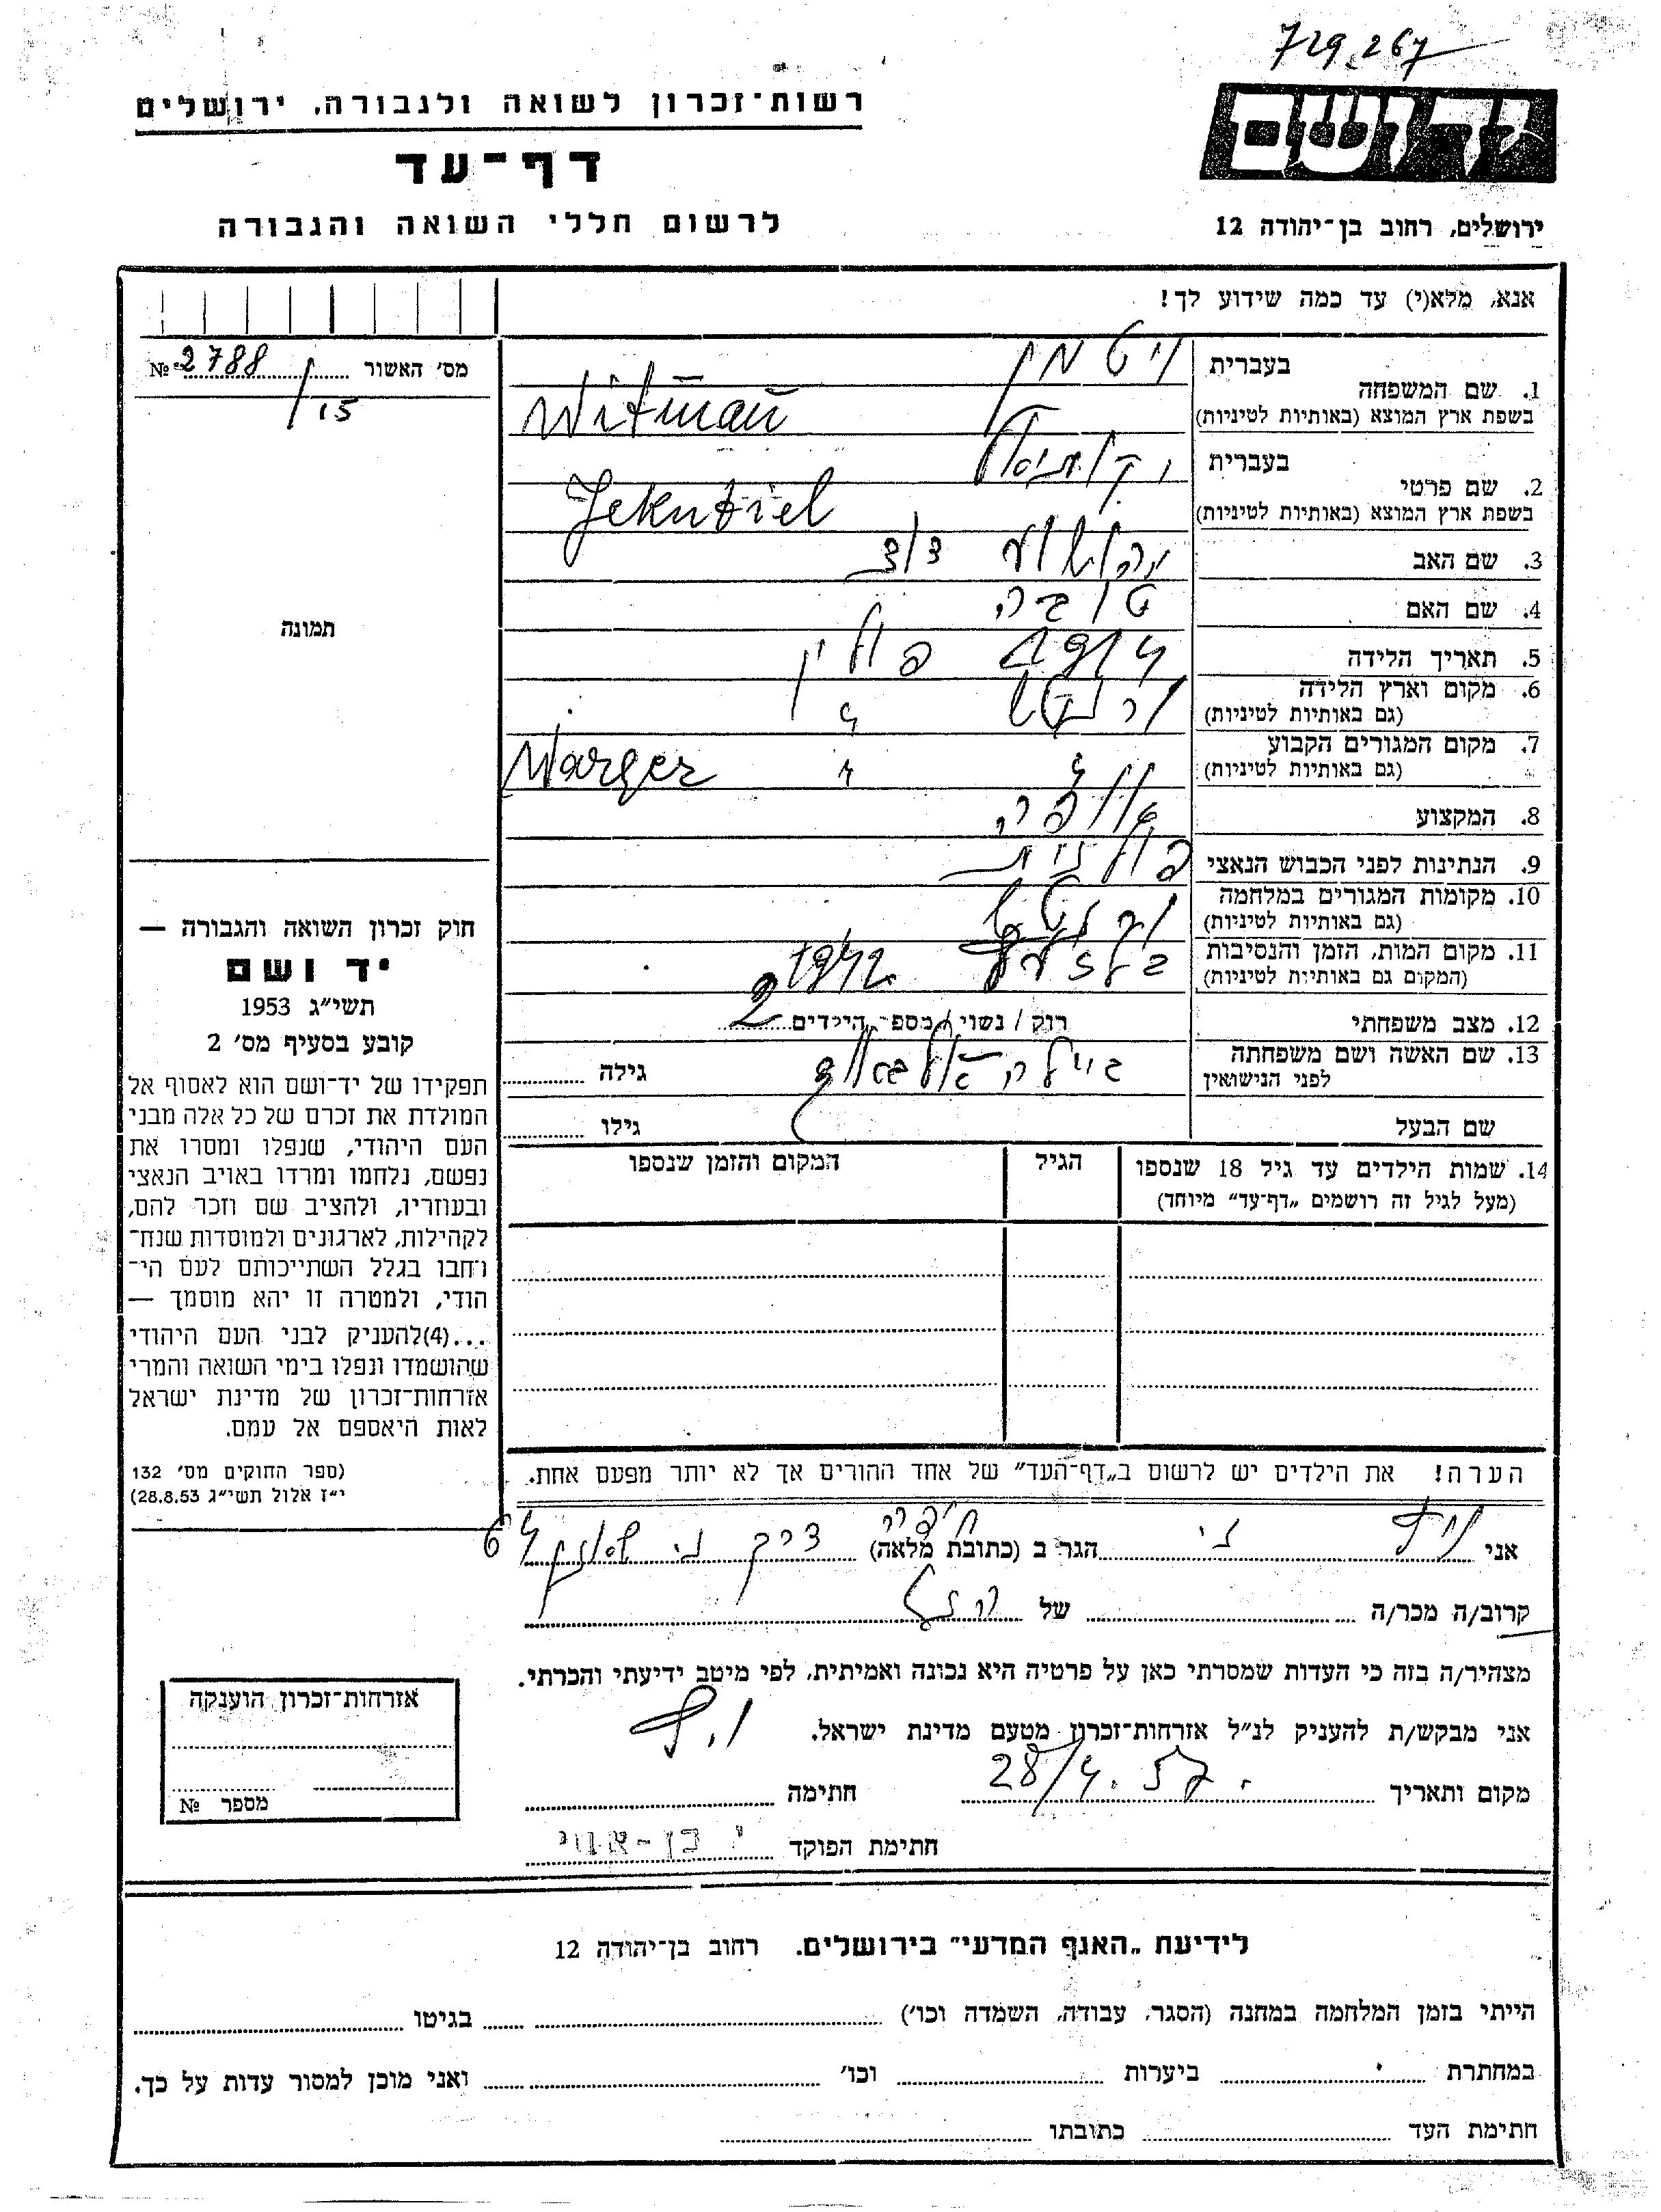 729.267
יד ושם
רשות־זכרון לשואה ולגבורה, ירושלים
דף־עד
לרשום חללי השואה והגבורה
ירושלים, רחוב בן־יהודה 12
אנא, מלא(י) עד כמה שידוע לך!
מס' האשור № 2788 / 15
1. שם המשפחה
בעברית ויטמן
בשפת ארץ המוצא (באותיות לטיניות) Witman
2. שם פרטי
בעברית יקותיאל
בשפת ארץ המוצא (באותיות לטיניות) Jekutiel
3. שם האב יהושע דוד
4. שם האם טובה
5. תאריך הלידה 1914 פולין
6. מקום וארץ הלידה
(גם באותיות לטיניות) "
7. מקום המגורים הקבוע
(גם באותיות לטיניות) " " Warger
8. המקצוע
9. הנתינות לפני הכבוש הנאצי פולנית
10. מקומות המגורים במלחמה
(גם באותיות לטיניות)
11. מקום המות, הזמן והנסיבות
(המקום גם באותיות לטיניות) 1942
12. מצב משפחתי רוק / נשוי / מספר הילדים 2
13. שם האשה ושם משפחתה
לפני הנישואין ביילה גילה
שם הבעל גילו
14. שמות הילדים עד גיל 18 שנספו
(מעל לגיל זה רושמים „דף־עד" מיוחד)
הגיל
המקום והזמן שנספו
הערה! את הילדים יש לרשום ב„דף־העד" של אחד ההורים אך לא יותר מפעם אחת.
תמונה
חוק זכרון השואה והגבורה —
יד ושם
תשי"ג 1953
קובע בסעיף מס' 2
תפקידו של יד־ושם הוא לאסוף אל
המולדת את זכרם של כל אלה מבני
העם היהודי, שנפלו ומסרו את
נפשם, נלחמו ומרדו באויב הנאצי
ובעוזריו, ולהציב שם וזכר להם,
לקהילות, לארגונים ולמוסדות שנח־
רחבו בגלל השתייכותם לעם הי־
הודי, ולמטרה זו יהא מוסמך —
...(4)להעניק לבני העם היהודי
שהושמדו ונפלו בימי השואה והמרי
אזרחות־זכרון של מדינת ישראל
לאות היאספם אל עמם.
(ספר החוקים מס' 132
י"ז אלול תשי"ג 28.8.53)
אני הגר ב (כתובת מלאה) חיפה דרך 64
קרוב/ה מכר/ה של
מצהיר/ה בזה כי העדות שמסרתי כאן על פרטיה היא נכונה ואמיתית, לפי מיטב ידיעתי והכרתי.
אני מבקש/ת להעניק לנ"ל אזרחות־זכרון מטעם מדינת ישראל.
מקום ותאריך 28/4.57. חתימה
חתימת הפוקד
אזרחות־זכרון הוענקה
מספר №
לידיעת „האגף המדעי" בירושלים, רחוב בן־יהודה 12
הייתי בזמן המלחמה במחנה (הסגר, עבודה, השמדה וכו') בגיטו
במחתרת ביערות וכו' ואני מוכן למסור עדות על כך.
חתימת העד כתובתו